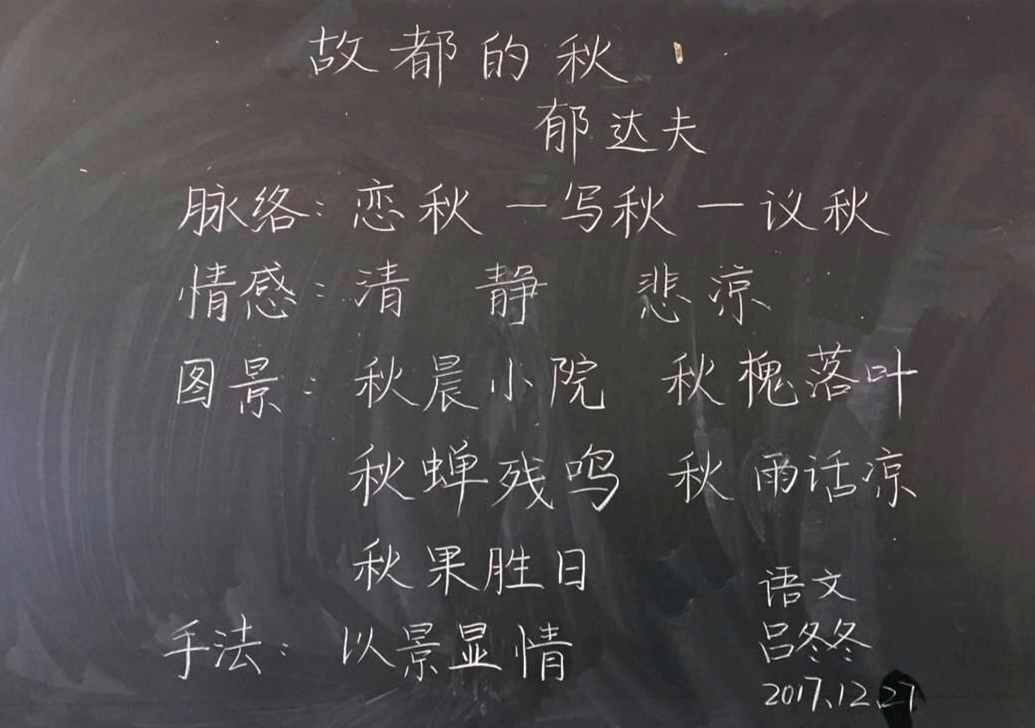 故都的秋
郁达夫
脉络：恋秋—写秋—议秋
情感：清 静 悲凉
图景：秋晨小院 秋槐落叶
秋蝉残鸣 秋雨话凉
秋果胜日
手法：以景显情
语文
吕冬冬
2017.12.27